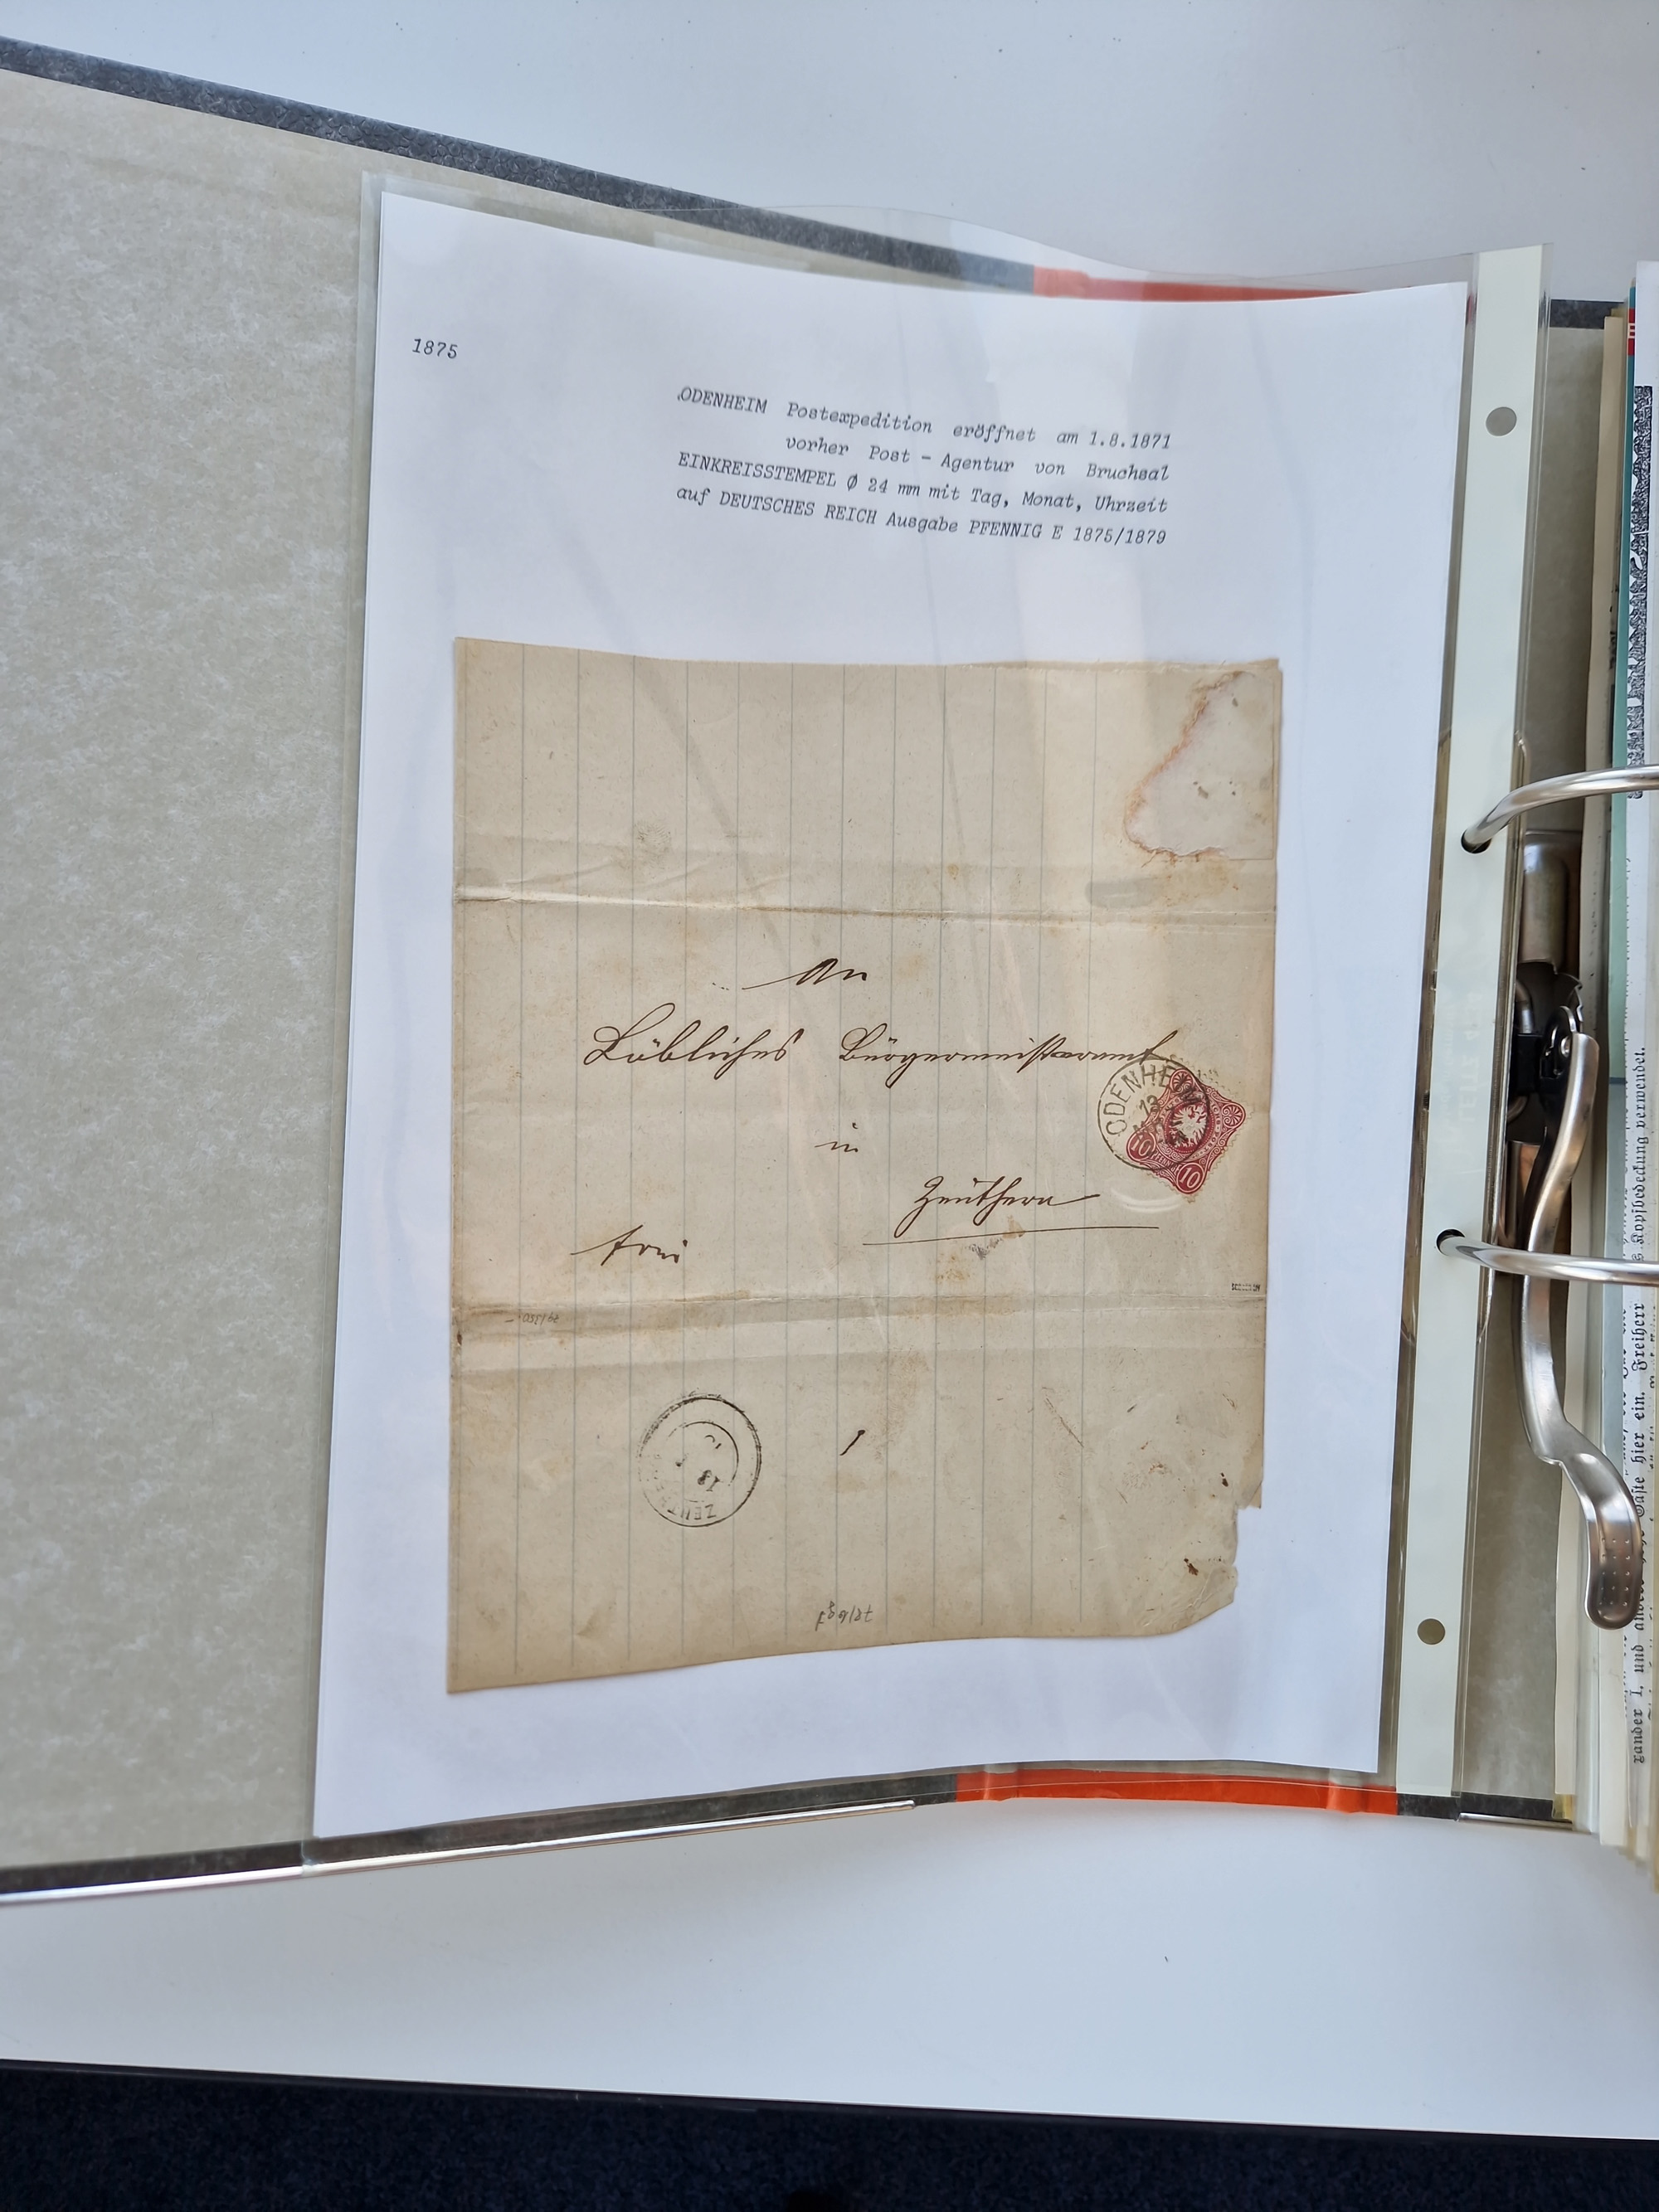 1875
ODENHEIM Postexpedition eröffnet am 1.8.1871
vorher Post - Agentur von Bruchsal
EINKREISSTEMPEL Ø 24 mm mit Tag, Monat, Uhrzeit
auf DEUTSCHES REICH Ausgabe PFENNIG E 1875/1879
An
Löbliches Bürgermeisteramt
in
Zeuthern
frei
ODENHEIM
13
10
10
ZEUTHE
13
1
Kopfbedeckung verwendet.
hier ein. Freiherr